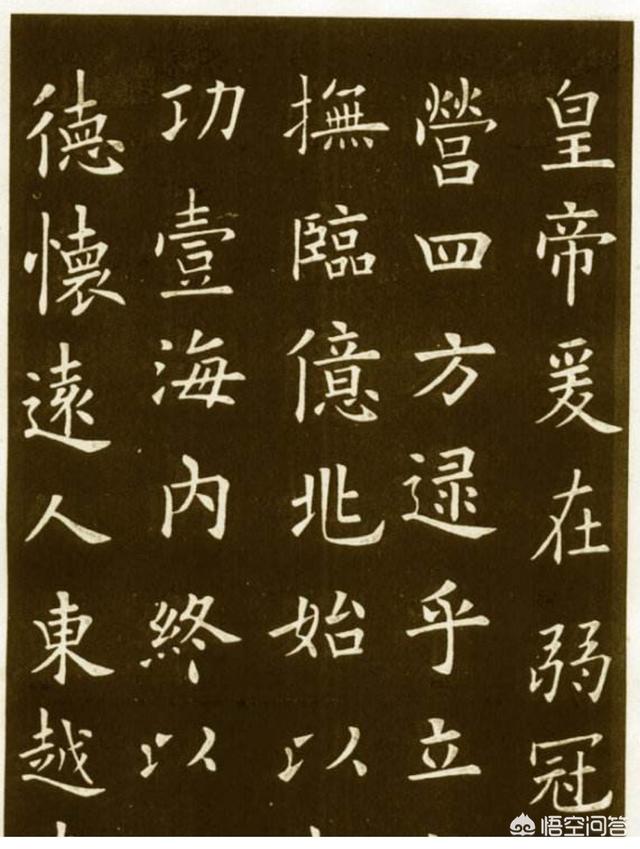 皇帝爰在弱冠
營四方逮乎立
撫臨億兆始以
功壹海内終以
德懷遠人東越
悟空问答